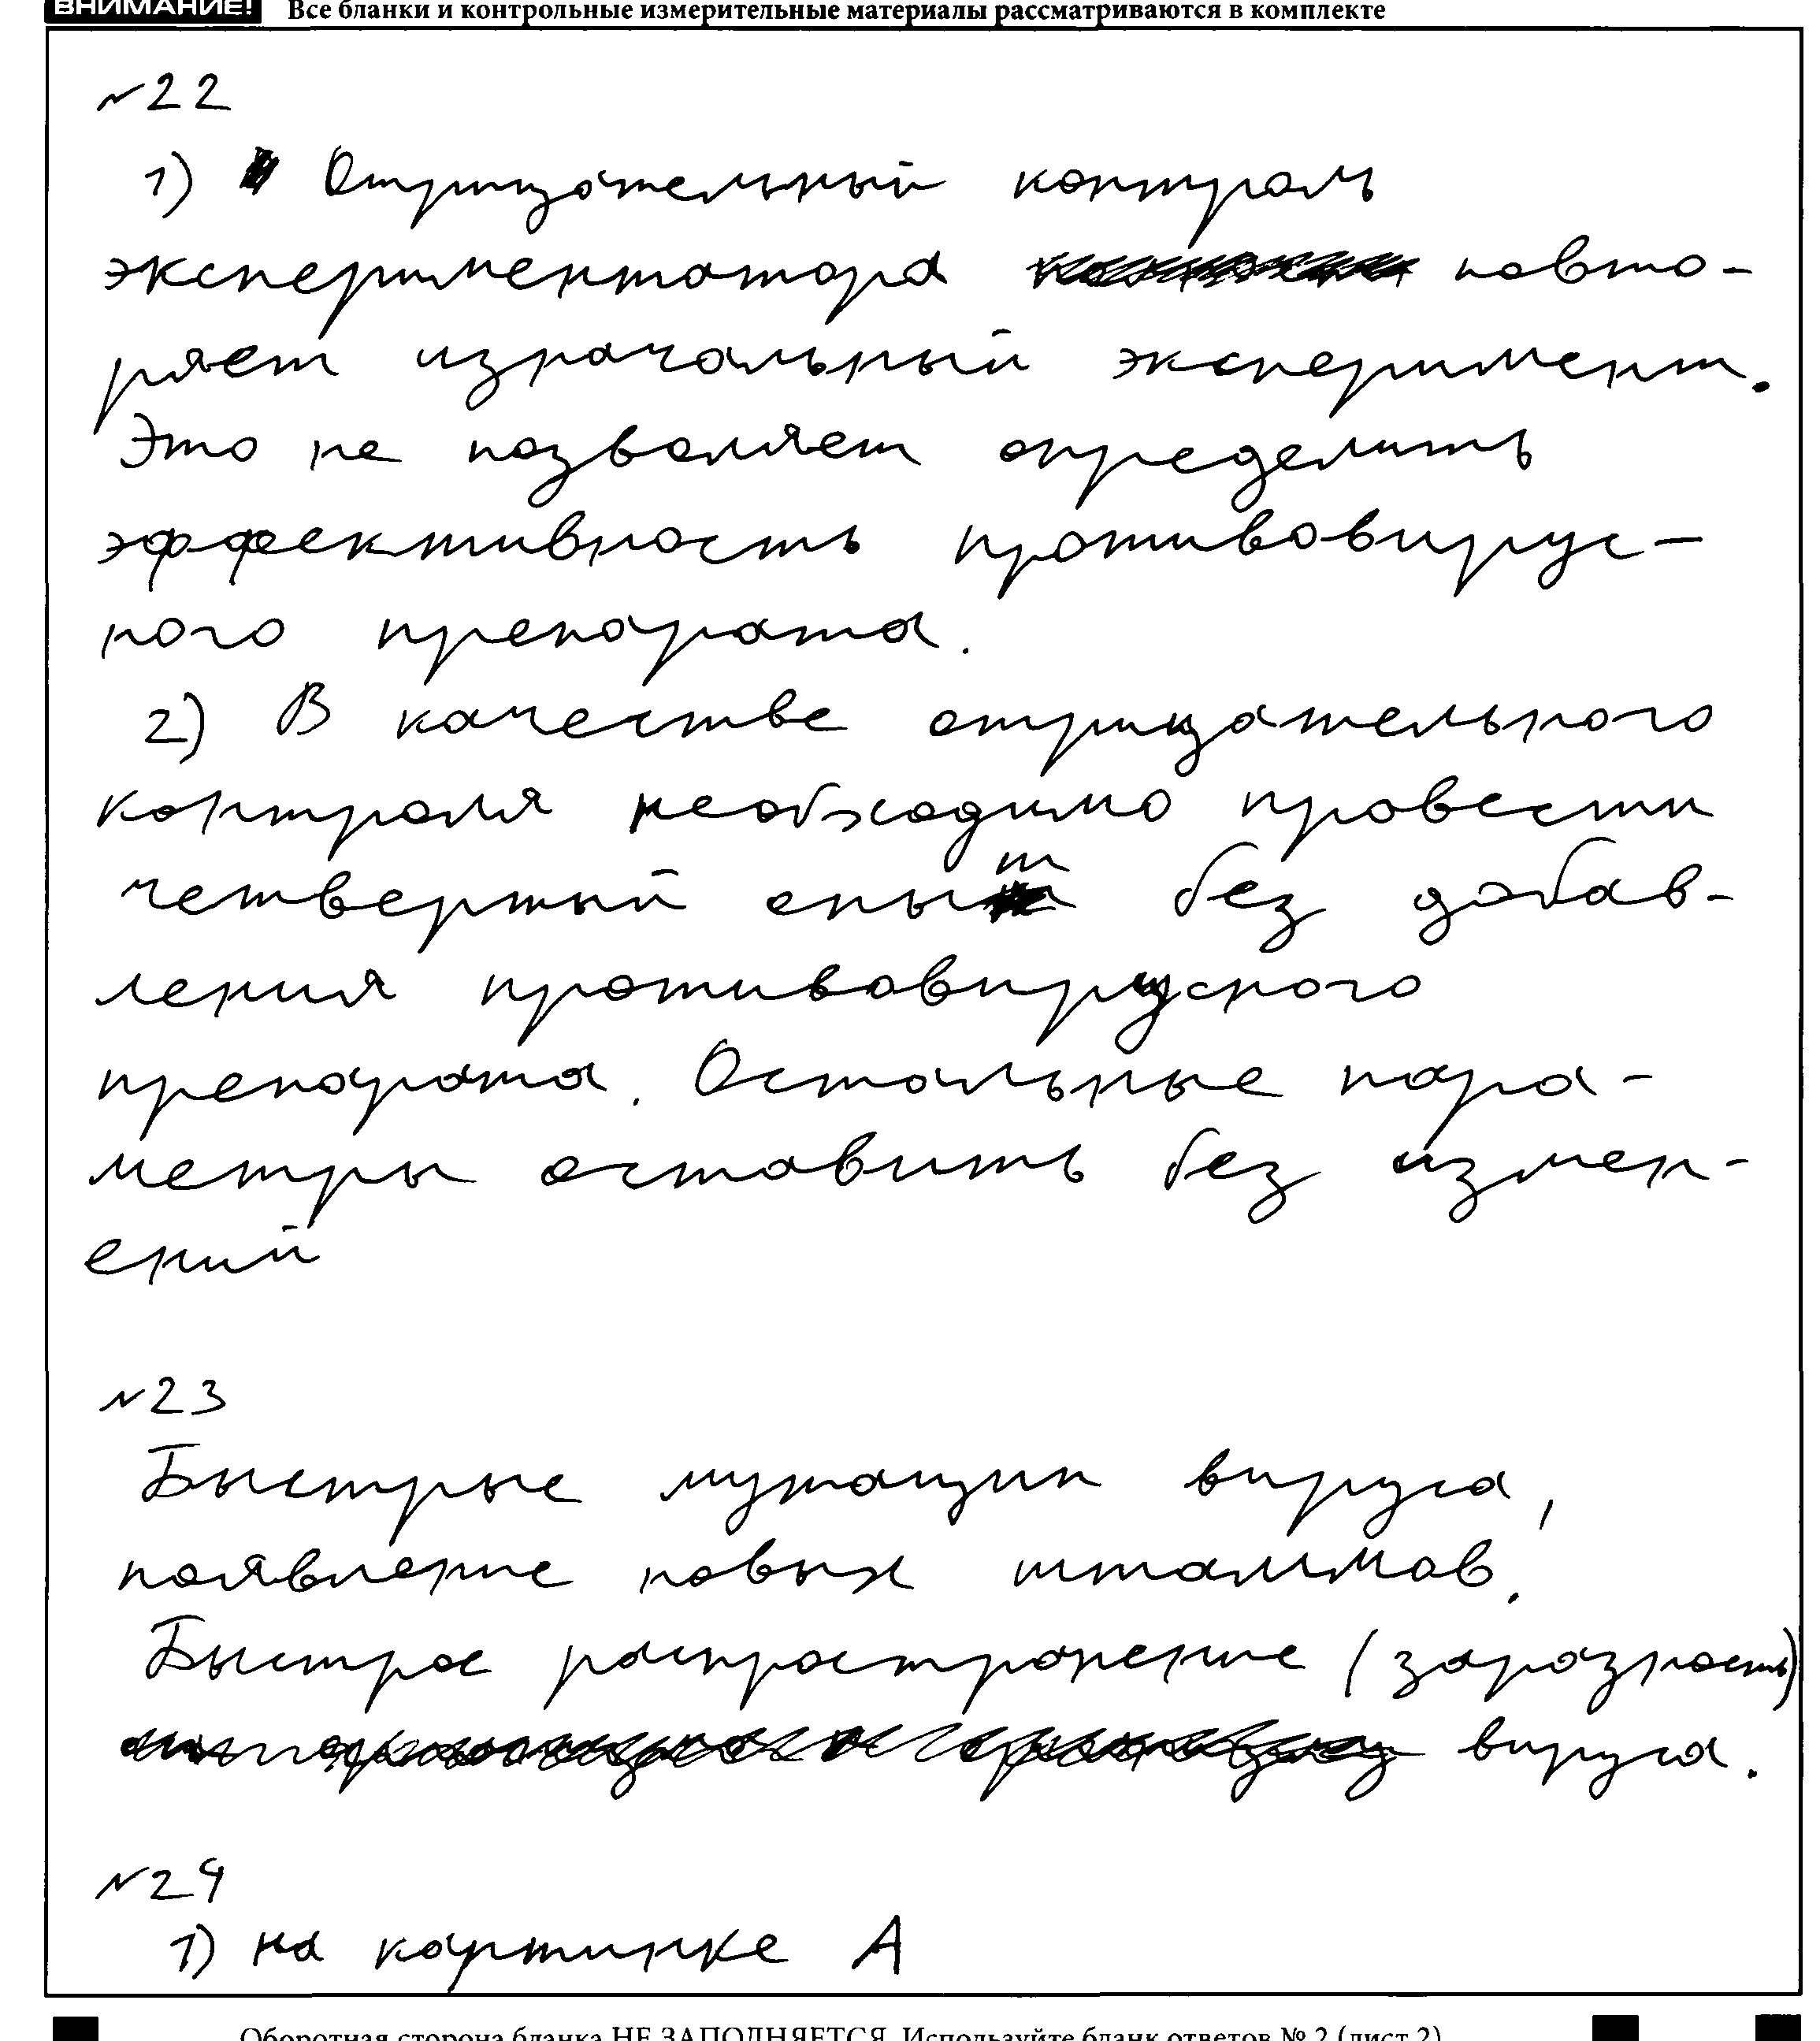 ВНИМАНИЕ! Все бланки и контрольные измерительные материалы рассматриваются в комплекте
№22
1) Отрицательный контроль
экспериментатора повто-
ряет изначальный эксперимент.
Это не позволяет определить
эффективность противовирус-
ного препарата.
2) В качестве отрицательного
контроля необходимо провести
четвертый опыт без добав-
ления противовирусного
препарата. Остальные пара-
метры оставить без измен-
ений
№23
Быстрые мутации вируса,
появление новых штаммов.
Быстрое распространение (заразность)
вируса.
№24
1) на картинке А
Оборотная сторона бланка НЕ ЗАПОЛНЯЕТСЯ. Используйте бланк ответов № 2 (лист 2)